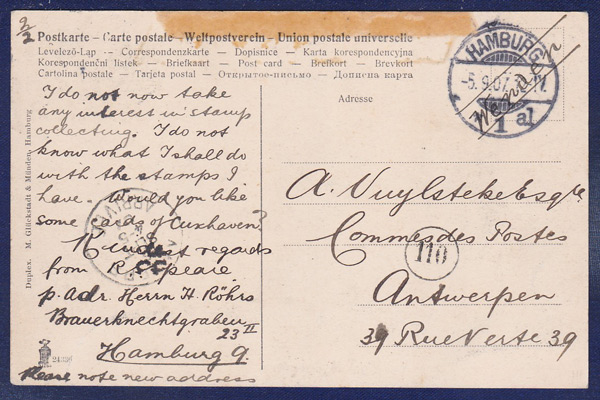 2/2
Postkarte – Carte postale – Weltpostverein – Union postale universelle
Levelező-Lap – Correspondenzkarte – Dopisnice – Karta korespondencyjna
Korespondenční lístek – Briefkaart – Post card – Brefkort – Brevkort
Cartolina postale – Tarjeta postal – Открытое-письмо – Дописна карта
Adresse
HAMBURG
-5.9.07.
1 a)
I do not now take
any interest in stamp
collecting. I do not
know what I shall do
with the stamps I
have. Would you like
some cards of Cuxhaven?
Kindest regards
from R. Speare.
p. adr. Herrn H. Röhrs
Brauerknechtgraben
23 II
Hamburg 9.
Please note new address
A. Vuylsteke Esqre
Commes des Postes
110
Antwerpen
39 Rue Verte 39
Duplex. M. Glückstadt & Münden, Hamburg